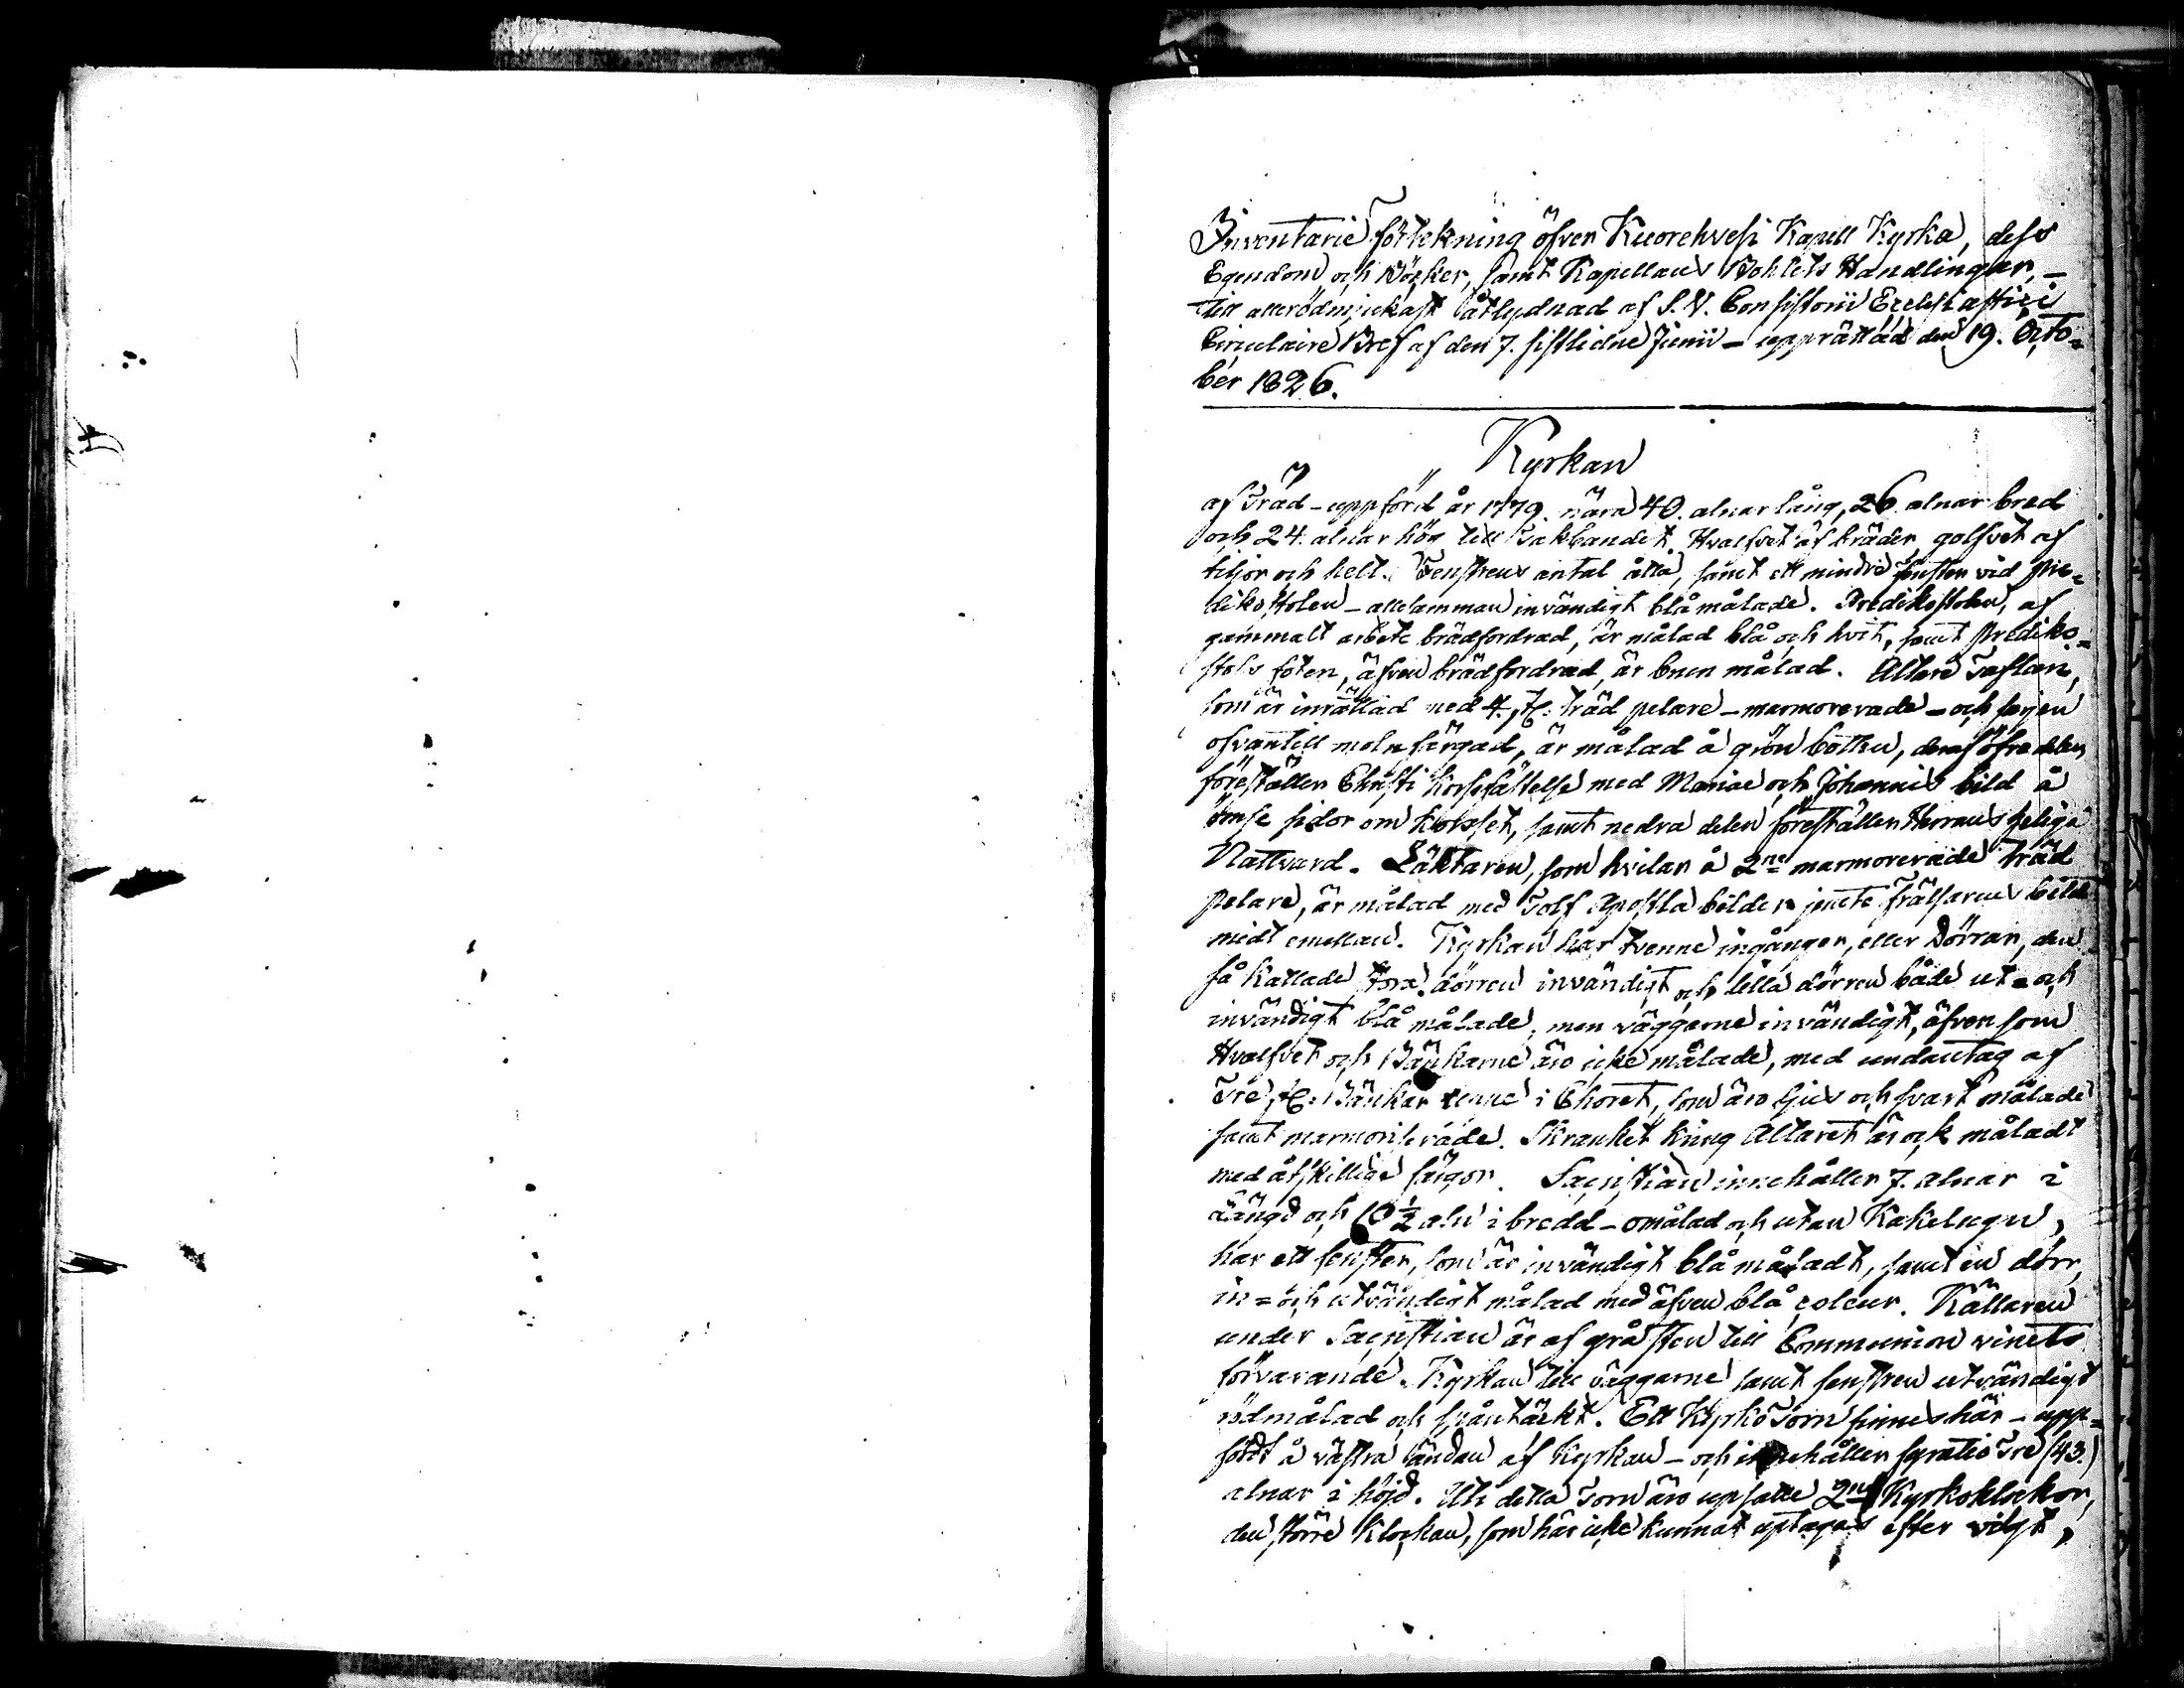 Inventarie Förtekning öfver Kuorehvesi Kapell Kyrka, dess
Egendom och Böcker, samt Kapellans Bohlets Handlingar, –
till allerödmjukast åtlydnad af S. V. Consistorii Ecclesiastici
Circulaire Bref af den 7. sistlidne Junii – upprättad den 19. Octo=
ber 1826.
Kyrkan
af Träd – uppförd år 1779. nära 40. alnar lång, 26 alnar bred
och 24. alnar hög till Takbandet. Hvalfvet af bräder golfvet af
tiljor och helt. Fenstrens antal åtta, samt ett mindre fenster vid Pre=
dikostolen – allesamman invändigt blå målade. Predikostolen, af
gammalt arbete brädfordrad, är målad blå och hvit, samt Prediko=
stols foten, äfven brädfordrad, är brun målad. Altare Taflan,
som är inrättad med 4. St. träd pelare – marmorerade – och
ofvantill molnfärgad, är målad å grön botten, deraf öfre delen
föreställer Christi Korssfästelse med Mariae och Johannis bild å
ömse sidor om Korsset, samt nedra delen föreställer Herrans heliga
Nattvard. Läktaren, som hvilar å 2ne marmorerade träd
pelare, är målad med Tolf Apostla bilder jemte Frälsarens bild
midt emellan. Kyrkan har tvenne ingångar, eller Dörrar, den
så kallade stora dörren invändigt och lilla dörren både ut= och
invändigt blå målade, men väggarne invändigt, äfven som
Hvalfvet och Bänkarne äro icke målade, med undantag af
Tre St. Bänkar i Choret, som äro ljus och svart målade
samt marmoriserade. Skranket kring Altaret är ock måladt
med åtskillige färgor. Sacristian innehåller 7. alnar i
Längd och 10 ½ aln i bredd – omålad och utan Kakelugn,
har ett fenster, som är invändigt blå måladt, samt en dörr,
in= och utvändigt målad med äfven blå coleur. Källaren
under Sacristian är af gråsten till Communion vinets
förvarande. Kyrkan till väggarne samt fenstren utvändigt
rödmålad och spåntäckt. Ett Kyrko Torn finnes här – upp=
fördt å västra ändan af Kyrkan – och innehåller fyratio Tre (43.)
alnar i höjd. Uti detta Torn äro upsatte 2ne Kyrkoklockor,
den större Klockan, som här icke kunnat uptagas efter vigt,